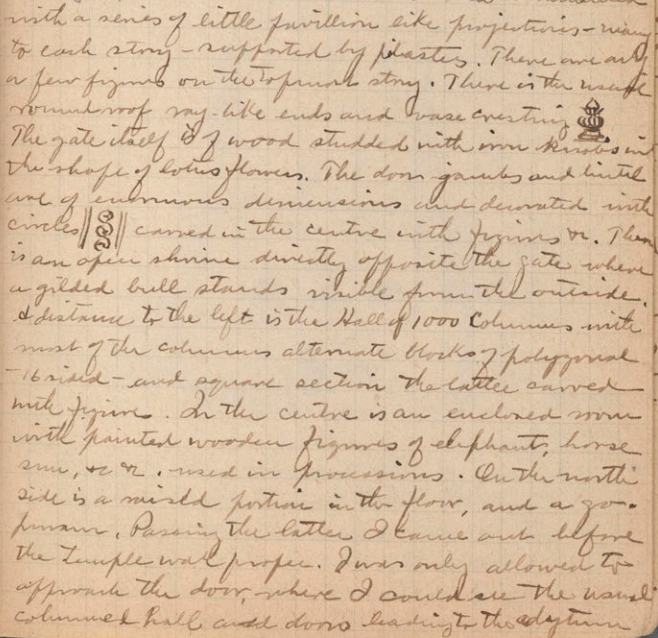 with a series of little pavillion like projections - many
to each story - supported by pilasters. There are only
a few figures on the topmost story. There is the usual
round roof ray-like ends and vase cresting
The gate itself is of wood studded with iron knobs in
the shape of lotus flowers. The door jambs and lintel
are of enormous dimensions and decorated with
circles carved in the centre with figures &c. There
is an open shrine directly opposite the gate where
a gilded bull stands visible from the outside.
A distance to the left is the Hall of 1000 Columns with
most of the columns alternate blocks of polygonal
- 16 sided - and square section the latter carved
with figures. In the centre is an enclosed room
with painted wooden figures of elephants, horse
sun, &c &c. used in processions. On the north
side is a raised portion in the floor, and a go-
puram. Passing the latter I came out before
the Temple wall proper. I was only allowed to
approach the door, where I could see the usual
columned hall and doors leading to the adytum